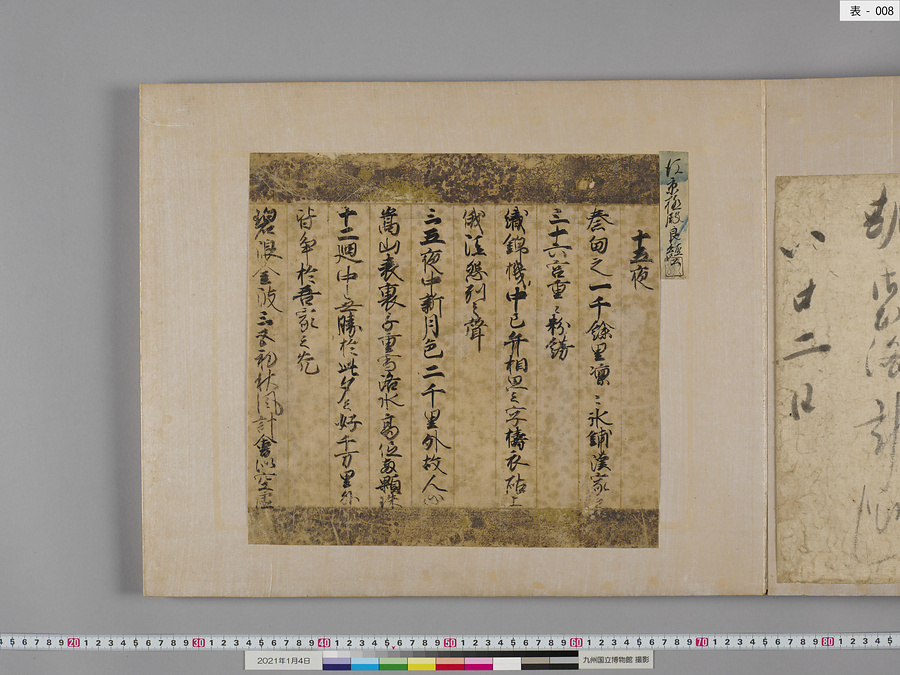 表 - 008
後京極殿良経公
十五夜
秦甸之一千餘里凛々氷鋪漢家之
三十六宮澄々粉餝
織錦機中已弁相思之字擣衣砧上
俄添怨別之聲
三五夜中新月色二千里外故人心
嵩山表裏千重雪洛水高低兩顆珠
十二廻中無勝於此夕之好千万里外
皆争於吾家之光
碧浪金波三五初秋風計會似空虚
八廿二日
2021年1月4日
九州国立博物館 撮影